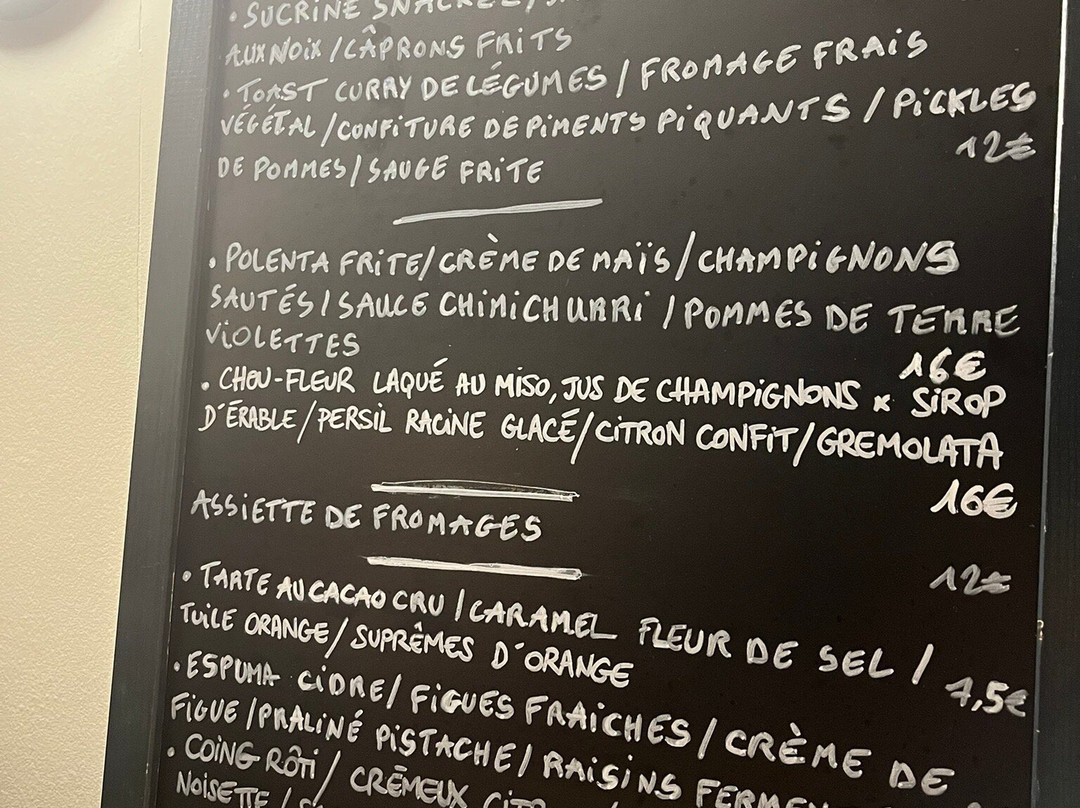 • SUCRINE SNACKÉE /
AUX NOIX / CÂPRONS FRITS
• TOAST CURRY DE LÉGUMES / FROMAGE FRAIS
VÉGÉTAL / CONFITURE DE PIMENTS PIQUANTS / PICKLES
DE POMMES / SAUGE FRITE 12€
• POLENTA FRITE / CRÈME DE MAÏS / CHAMPIGNONS
SAUTÉS / SAUCE CHIMICHURRI / POMMES DE TERRE
VIOLETTES 16€
• CHOU-FLEUR LAQUÉ AU MISO, JUS DE CHAMPIGNONS x SIROP
D'ÉRABLE / PERSIL RACINE GLACÉ / CITRON CONFIT / GREMOLATA
16€
ASSIETTE DE FROMAGES
12€
• TARTE AU CACAO CRU / CARAMEL FLEUR DE SEL /
TUILE ORANGE / SUPRÊMES D'ORANGE 7,5€
• ESPUMA CIDRE / FIGUES FRAICHES / CRÈME DE
FIGUE / PRALINÉ PISTACHE / RAISINS
• COING RÔTI / CRÉMEUX
NOISETTE /